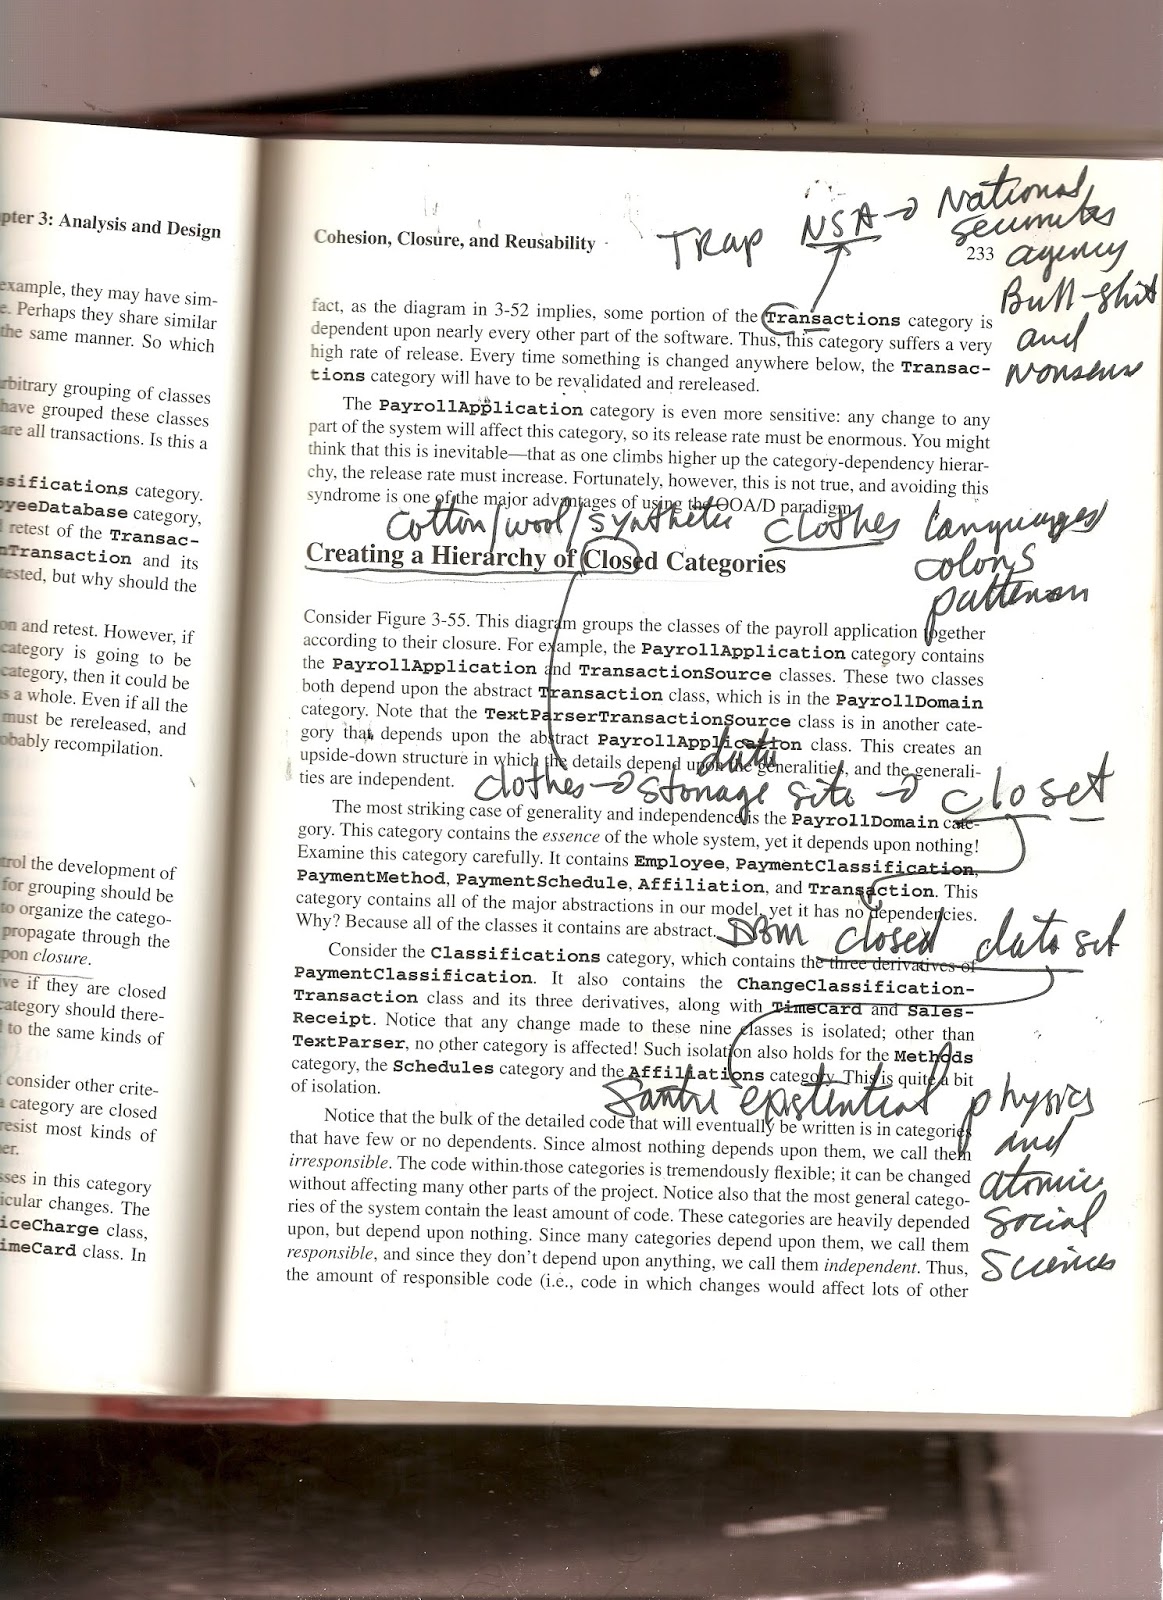 pter 3: Analysis and Design
example, they may have sim-
e. Perhaps they share similar
the same manner. So which
rbitrary grouping of classes
have grouped these classes
are all transactions. Is this a
ssifications category.
oyeeDatabase category,
l retest of the Transac-
nTransaction and its
tested, but why should the
on and retest. However, if
category is going to be
category, then it could be
s a whole. Even if all the
must be rereleased, and
obably recompilation.
trol the development of
for grouping should be
to organize the catego-
propagate through the
pon closure.
ve if they are closed
category should there-
to the same kinds of
consider other crite-
a category are closed
resist most kinds of
er.
sses in this category
icular changes. The
iceCharge class,
imeCard class. In
Cohesion, Closure, and Reusability
233
TRap NSA → National
Security
agency
Bull-shit
and
nonsense
fact, as the diagram in 3-52 implies, some portion of the Transactions category is
dependent upon nearly every other part of the software. Thus, this category suffers a very
high rate of release. Every time something is changed anywhere below, the Transac-
tions category will have to be revalidated and rereleased.
The PayrollApplication category is even more sensitive: any change to any
part of the system will affect this category, so its release rate must be enormous. You might
think that this is inevitable—that as one climbs higher up the category-dependency hierar-
chy, the release rate must increase. Fortunately, however, this is not true, and avoiding this
syndrome is one of the major advantages of using the OOA/D paradigm.
cotton/wool/synthetic clothes languages
colons
pattern
Creating a Hierarchy of Closed Categories
Consider Figure 3-55. This diagram groups the classes of the payroll application together
according to their closure. For example, the PayrollApplication category contains
the PayrollApplication and TransactionSource classes. These two classes
both depend upon the abstract Transaction class, which is in the PayrollDomain
category. Note that the TextParserTransactionSource class is in another cate-
gory that depends upon the abstract PayrollApplication class. This creates an
upside-down structure in which the details depend upon the generalities, and the generali-
ties are independent.
data
clothes → storage site → closet
The most striking case of generality and independence is the PayrollDomain cate-
gory. This category contains the essence of the whole system, yet it depends upon nothing!
Examine this category carefully. It contains Employee, PaymentClassification,
PaymentMethod, PaymentSchedule, Affiliation, and Transaction. This
category contains all of the major abstractions in our model, yet it has no dependencies.
Why? Because all of the classes it contains are abstract.
DBM closed data set
Consider the Classifications category, which contains the three derivatives of
PaymentClassification. It also contains the ChangeClassification-
Transaction class and its three derivatives, along with TimeCard and Sales-
Receipt. Notice that any change made to these nine classes is isolated; other than
TextParser, no other category is affected! Such isolation also holds for the Methods
category, the Schedules category and the Affiliations category. This is quite a bit
of isolation.
Santre epistential physics
and
atomic
social
Sciences
Notice that the bulk of the detailed code that will eventually be written is in categories
that have few or no dependents. Since almost nothing depends upon them, we call them
irresponsible. The code within those categories is tremendously flexible; it can be changed
without affecting many other parts of the project. Notice also that the most general catego-
ries of the system contain the least amount of code. These categories are heavily depended
upon, but depend upon nothing. Since many categories depend upon them, we call them
responsible, and since they don't depend upon anything, we call them independent. Thus,
the amount of responsible code (i.e., code in which changes would affect lots of other